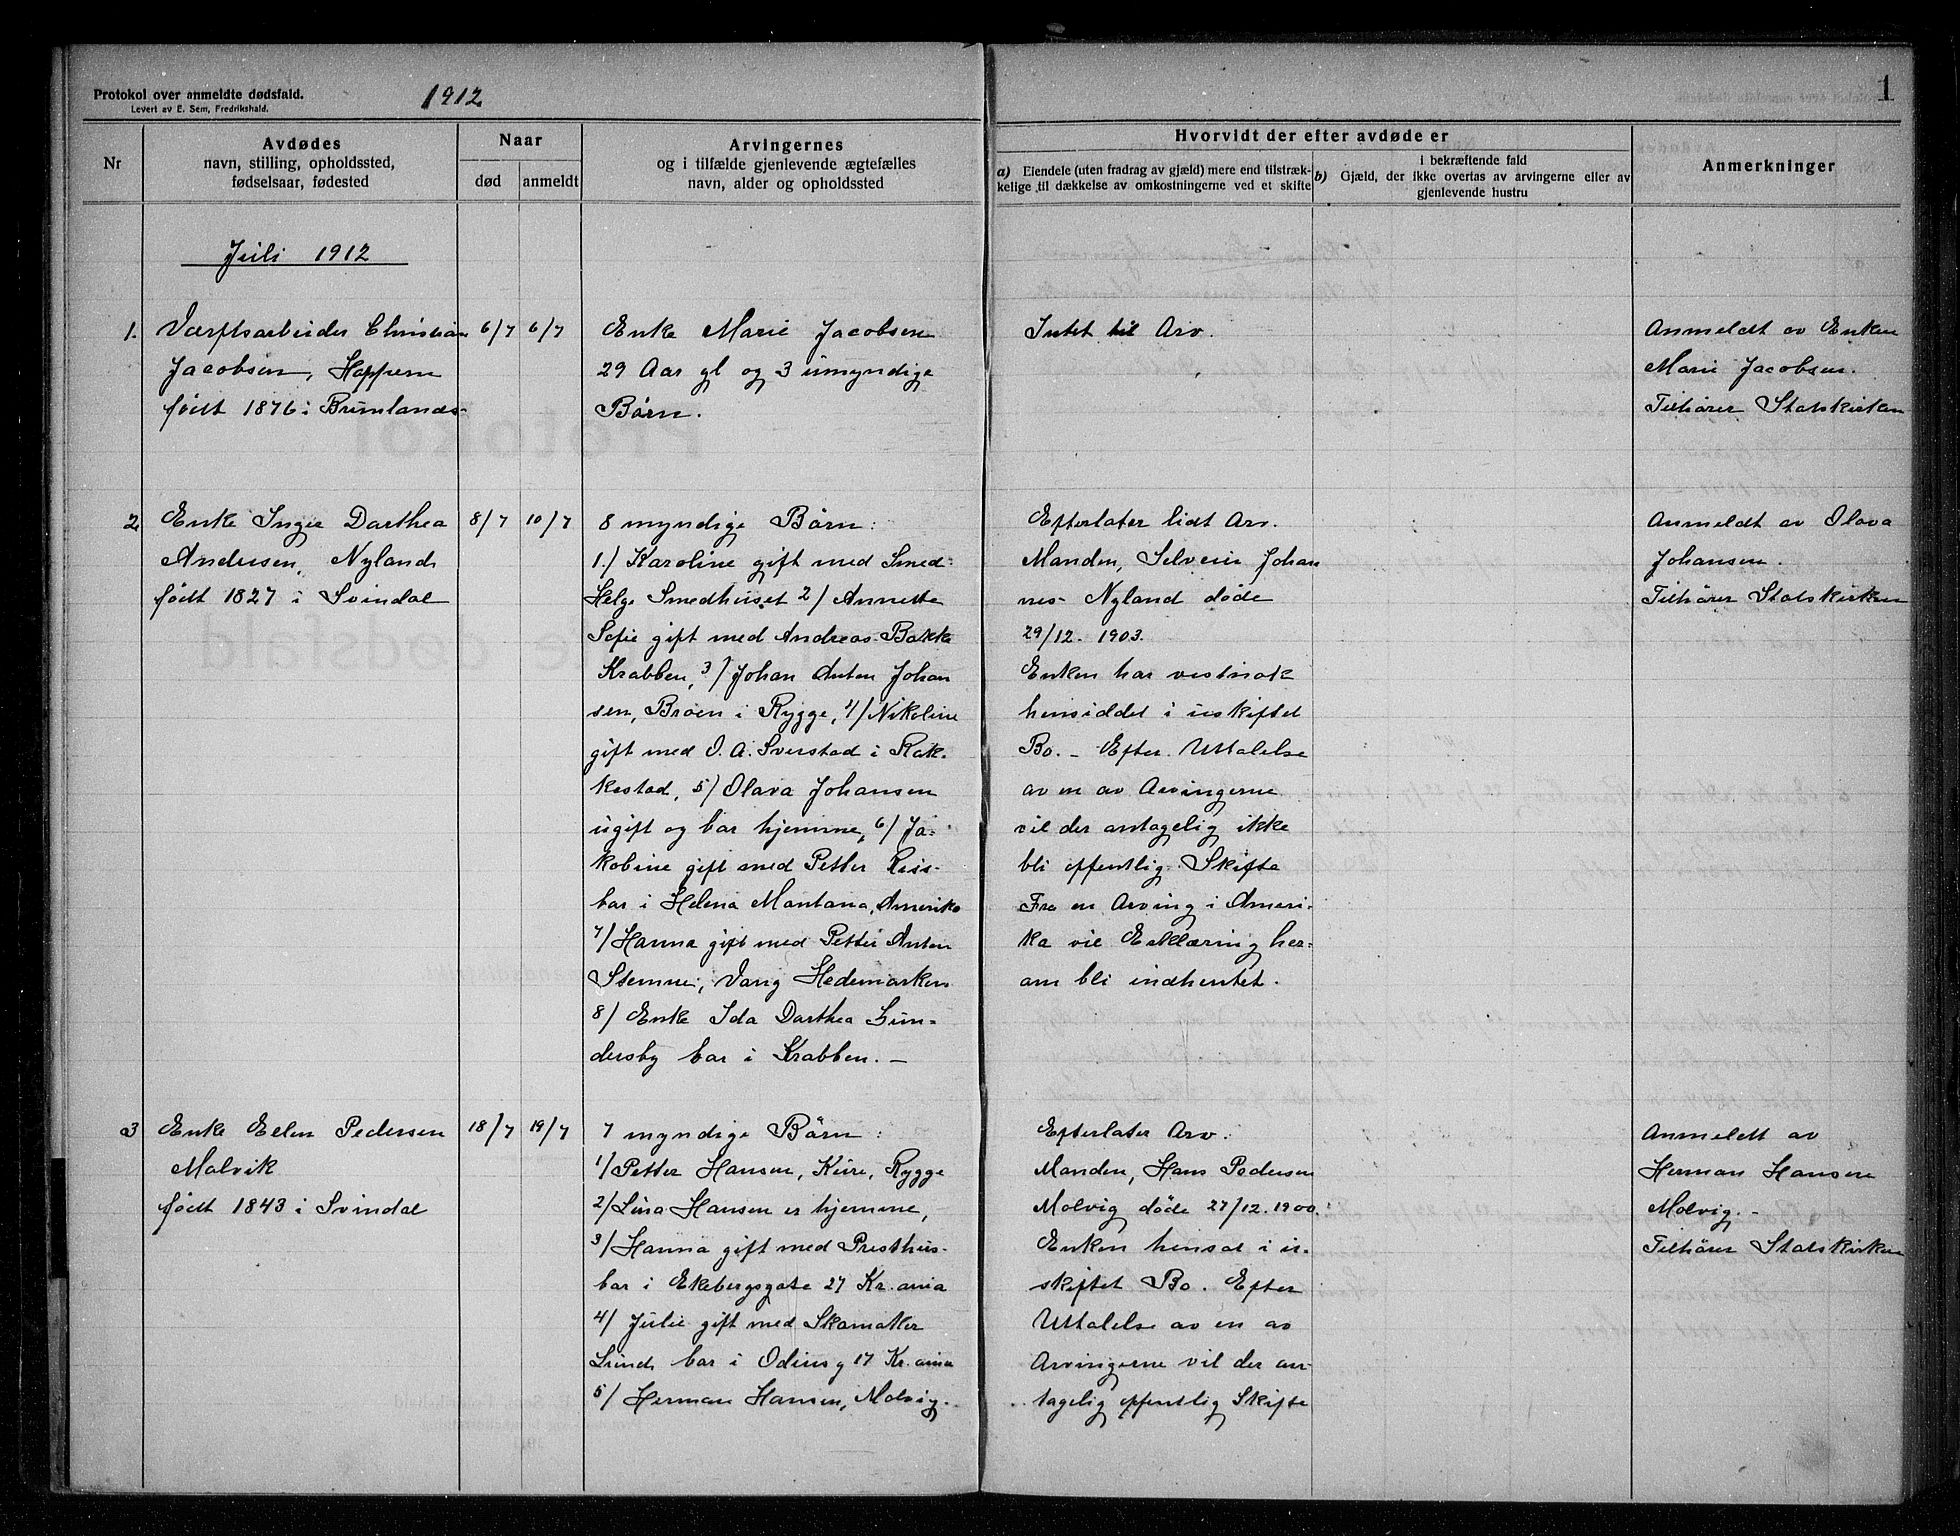 Protokol over anmeldte dødsfald.
Levert av E. Sem, Fredrikshald.
1912
1
Nr
Avdødes
navn, stilling, opholdssted,
fødselsaar, fødested
Naar
død
anmeldt
Arvingernes
og i tilfælde gjenlevende ægtefælles
navn, alder og opholdssted
Hvorvidt der efter avdøde er
a) Eiendele (uten fradrag av gjæld) mere end tilstræk-
kelige til dækkelse av omkostningerne ved et skifte
i bekræftende fald
b) Gjæld, der ikke overtas av arvingerne eller av
gjenlevende hustru
Anmerkninger
Juli 1912
1.
Værftsarbeider Christian
Jacobsen, Hoppern
født 1876 i Brunlands-
6/7
6/7
Enke Marie Jacobsen
29 Aar gl og 3 umyndige
Børn.
Intet til Arv.
Anmeldt av Enken
Marie Jacobsen.
Tilhører Statskirken
2
Enke Inger Dorthea
Andresen, Nyland
født 1827 i Svindal
8/7
10/7
8 myndige Børn:
1.) Karoline gift med Smed-
Helge Smedhuset 2/ Annette
Sofie gift med Andreas Bakke
Krabben, 3/ Johan Anton Johan
sen, Broen i Rygge, 4/ Nikoline
gift med O. A. Sverstad i Rak-
kestad, 5/ Olava Johansen
ugift og bor hjemme, 6/ Ja-
kobine gift med Petter Riis-
bor i Helena Montana, Amerika
7/ Hanna gift med Petter Anton
Stemme, Vang Hedemarken
8/ Enke Ida Dorthea Gun-
dersby bor i Krabben. –
Efterlater lidt Arv.
Manden, Selveier Johan
nes Nyland døde
29/12. 1903.
Enken har vistnok
hensiddet i uskiftet
Bo. – Efter Uttalelse
av en av Arvingerne
vil der antagelig ikke
bli offentlig Skifte
Fra en Arving i Ameri-
ka vil Erklæring her-
om bli indhentet.
Anmeldt av Olava
Johansen.
Tilhører Statskirken
3
Enke Elen Pedersen
Molvik
født 1843 i Svindal
18/7
19/7
7 myndige Børn:
1/ Petter Hansen, Kure, Rygge
2/ Lina Hansen er hjemme,
3/ Hanna gift med Presthus-
bor i Ekebergsgate 27 Kr.ania
4/ Julie gift med Skomaker
Lund bor i Odins g 17 Kr.ania
5/ Herman Hansen, Molvig.
Efterlater Arv.
Manden, Hans Pedersen
Molvig døde 27/12.1900.
Enken hensat i u-
skiftet Bo. Efter
Uttalelse av en av
Arvingerne vil der an-
tagelig offentlig Skifte
Anmeldt av
Herman Hansen
Molvig. –
Tilhører Statskirken